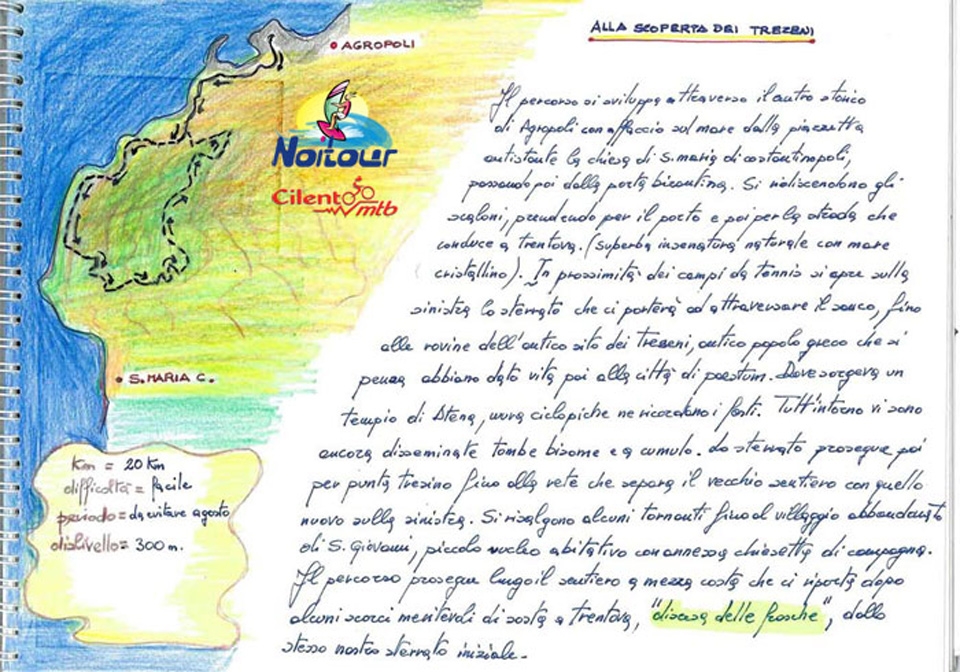 ALLA SCOPERTA DEI TREZENI
AGROPOLI
Noitour
Cilento mtb
S. MARIA C.
Il percorso si sviluppa attraverso il centro storico
di Agropoli con affaccio sul mare dalla piazzetta
antistante la chiesa di S. maria di costantinopoli,
passando poi dalla porta bizantina. Si ridiscendono gli
scaloni, prendendo per il porto e poi per la strada che
conduce a trentova. (superba insenatura naturale con mare
cristallino). In prossimità dei campi da tennis si apre sulla
sinistra lo sterrato che ci porterà ad attraversare il sauco, fino
alle rovine dell'antico sito dei Trezeni, antico popolo greco che si
pensa abbiano dato vita poi alla città di paestum. Dove sorgeva un
tempio di Atena, mura ciclopiche ne ricordano i fasti. Tutt'intorno vi sono
ancora disseminate tombe bisome e a cumulo. Lo sterrato prosegue poi
per punta tresino fino alla vetè che separa il vecchio sentiero con quello
nuovo sulla sinistra. Si risalgono alcuni tornanti fino al villaggio abbandonato
di S. Giovanni, piccolo nucleo abitativo con annessa chiesetta di campagna.
Il percorso prosegue lungo il sentiero a mezza costa che ci riporta dopo
alcuni scorci meritevoli di sosta a trentova, "discesa delle frasche", dallo
stesso nostro sterrato iniziale.
Km = 20 Km
difficoltà = facile
periodo = da evitare agosto
dislivello = 300 m.